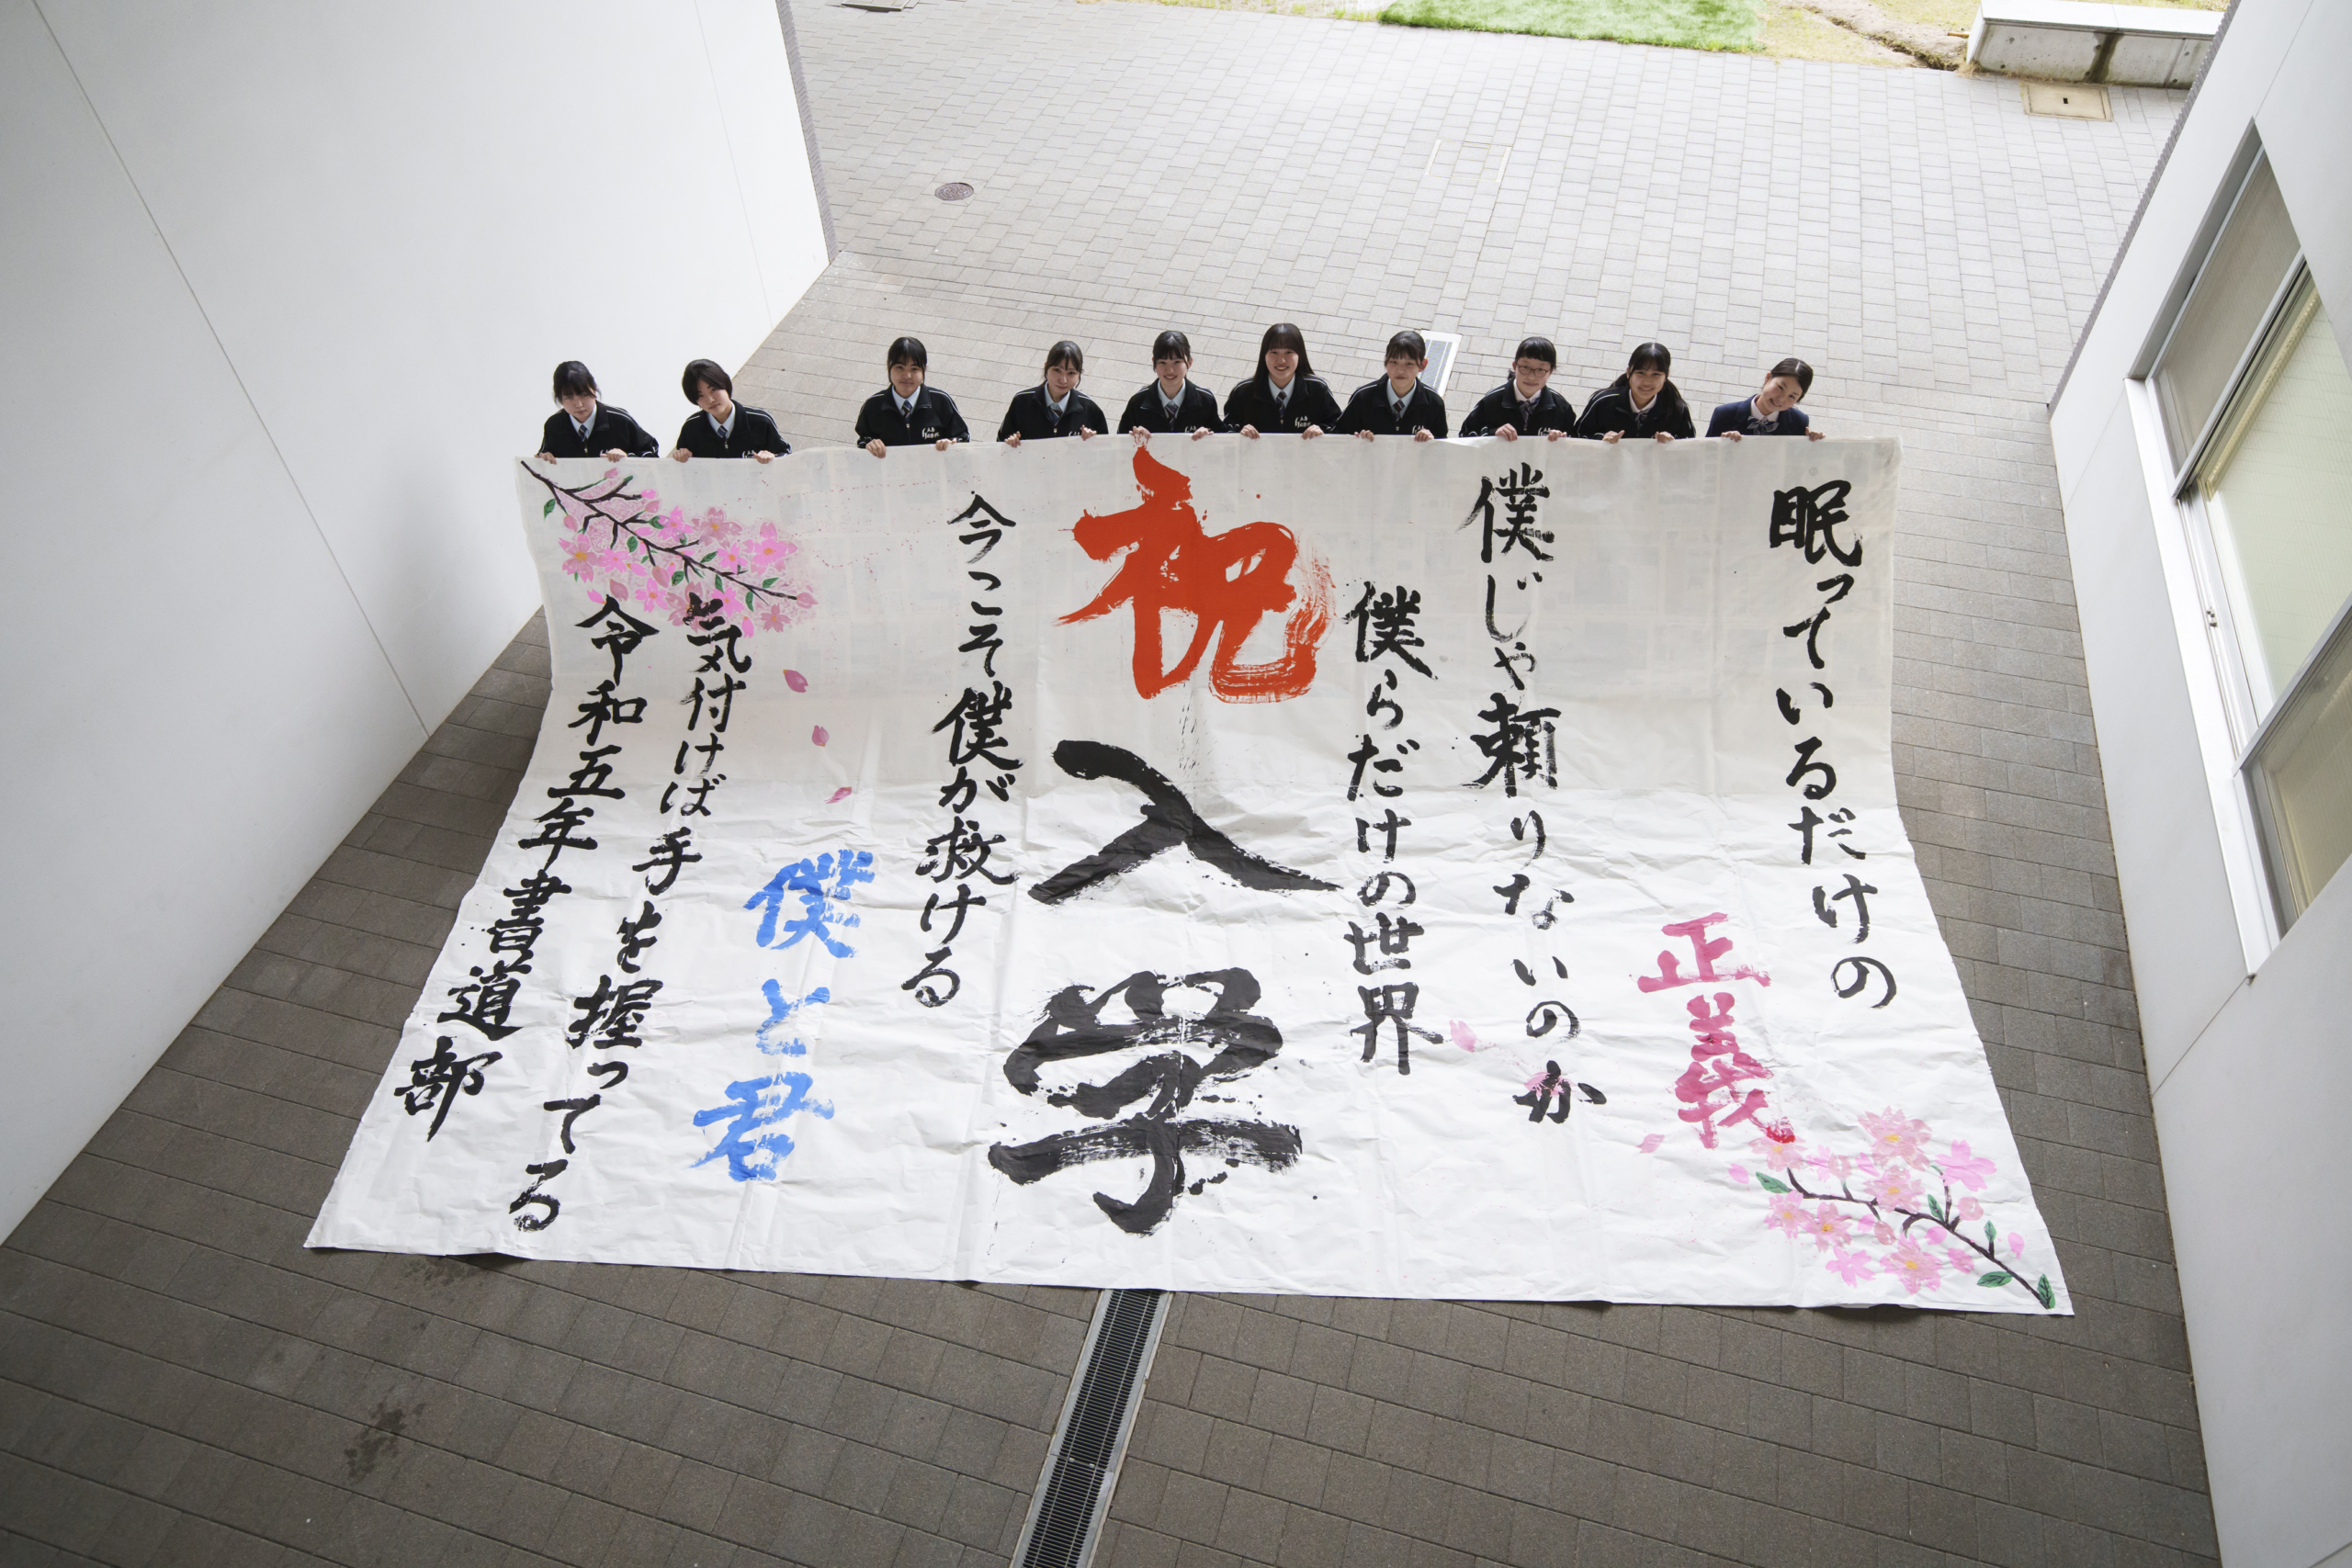 眠っているだけの
正義
僕じゃ頼りないのか
僕らだけの世界
祝入学
今こそ僕が救ける
僕と君
気付けば手を握ってる
令和五年書道部